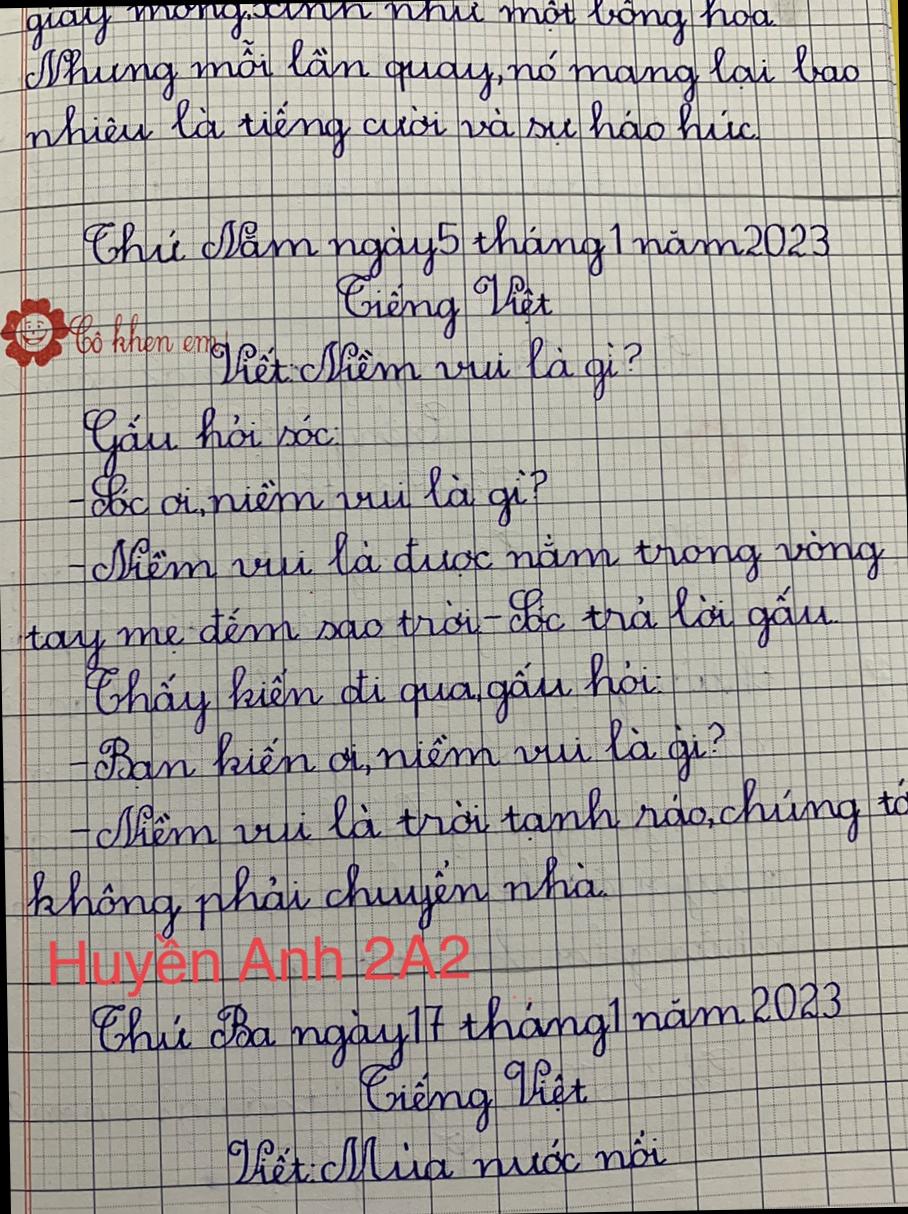 giấy mỏng.xinh như một bông hoa
Nhưng mỗi lần quay,nó mang lại bao
nhiêu là tiếng cười và sự háo hức.
Thứ Năm ngày5 tháng1 năm2023
Tiếng Việt
Cô khen em
Viết:Niềm vui là gì?
Gấu hỏi sóc:
-Sóc ơi,niềm vui là gì?
-Niềm vui là được nằm trong vòng
tay mẹ đếm sao trời-Sóc trả lời gấu.
Thấy kiến đi qua,gấu hỏi:
-Bạn kiến ơi,niềm vui là gì?
-Niềm vui là trời tạnh ráo,chúng tớ
không phải chuyển nhà.
Huyền Anh 2A2
Thứ Ba ngày17 tháng1 năm2023
Tiếng Việt
Viết:Mùa nước nổi